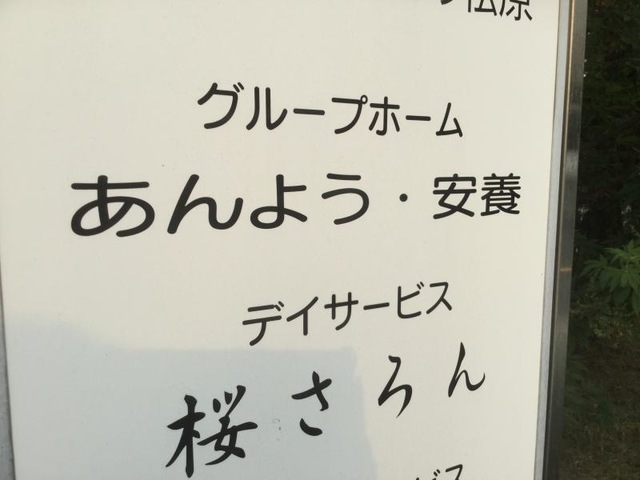 松原
グループホーム
あんよう・安養
デイサービス
桜さろん
ビス